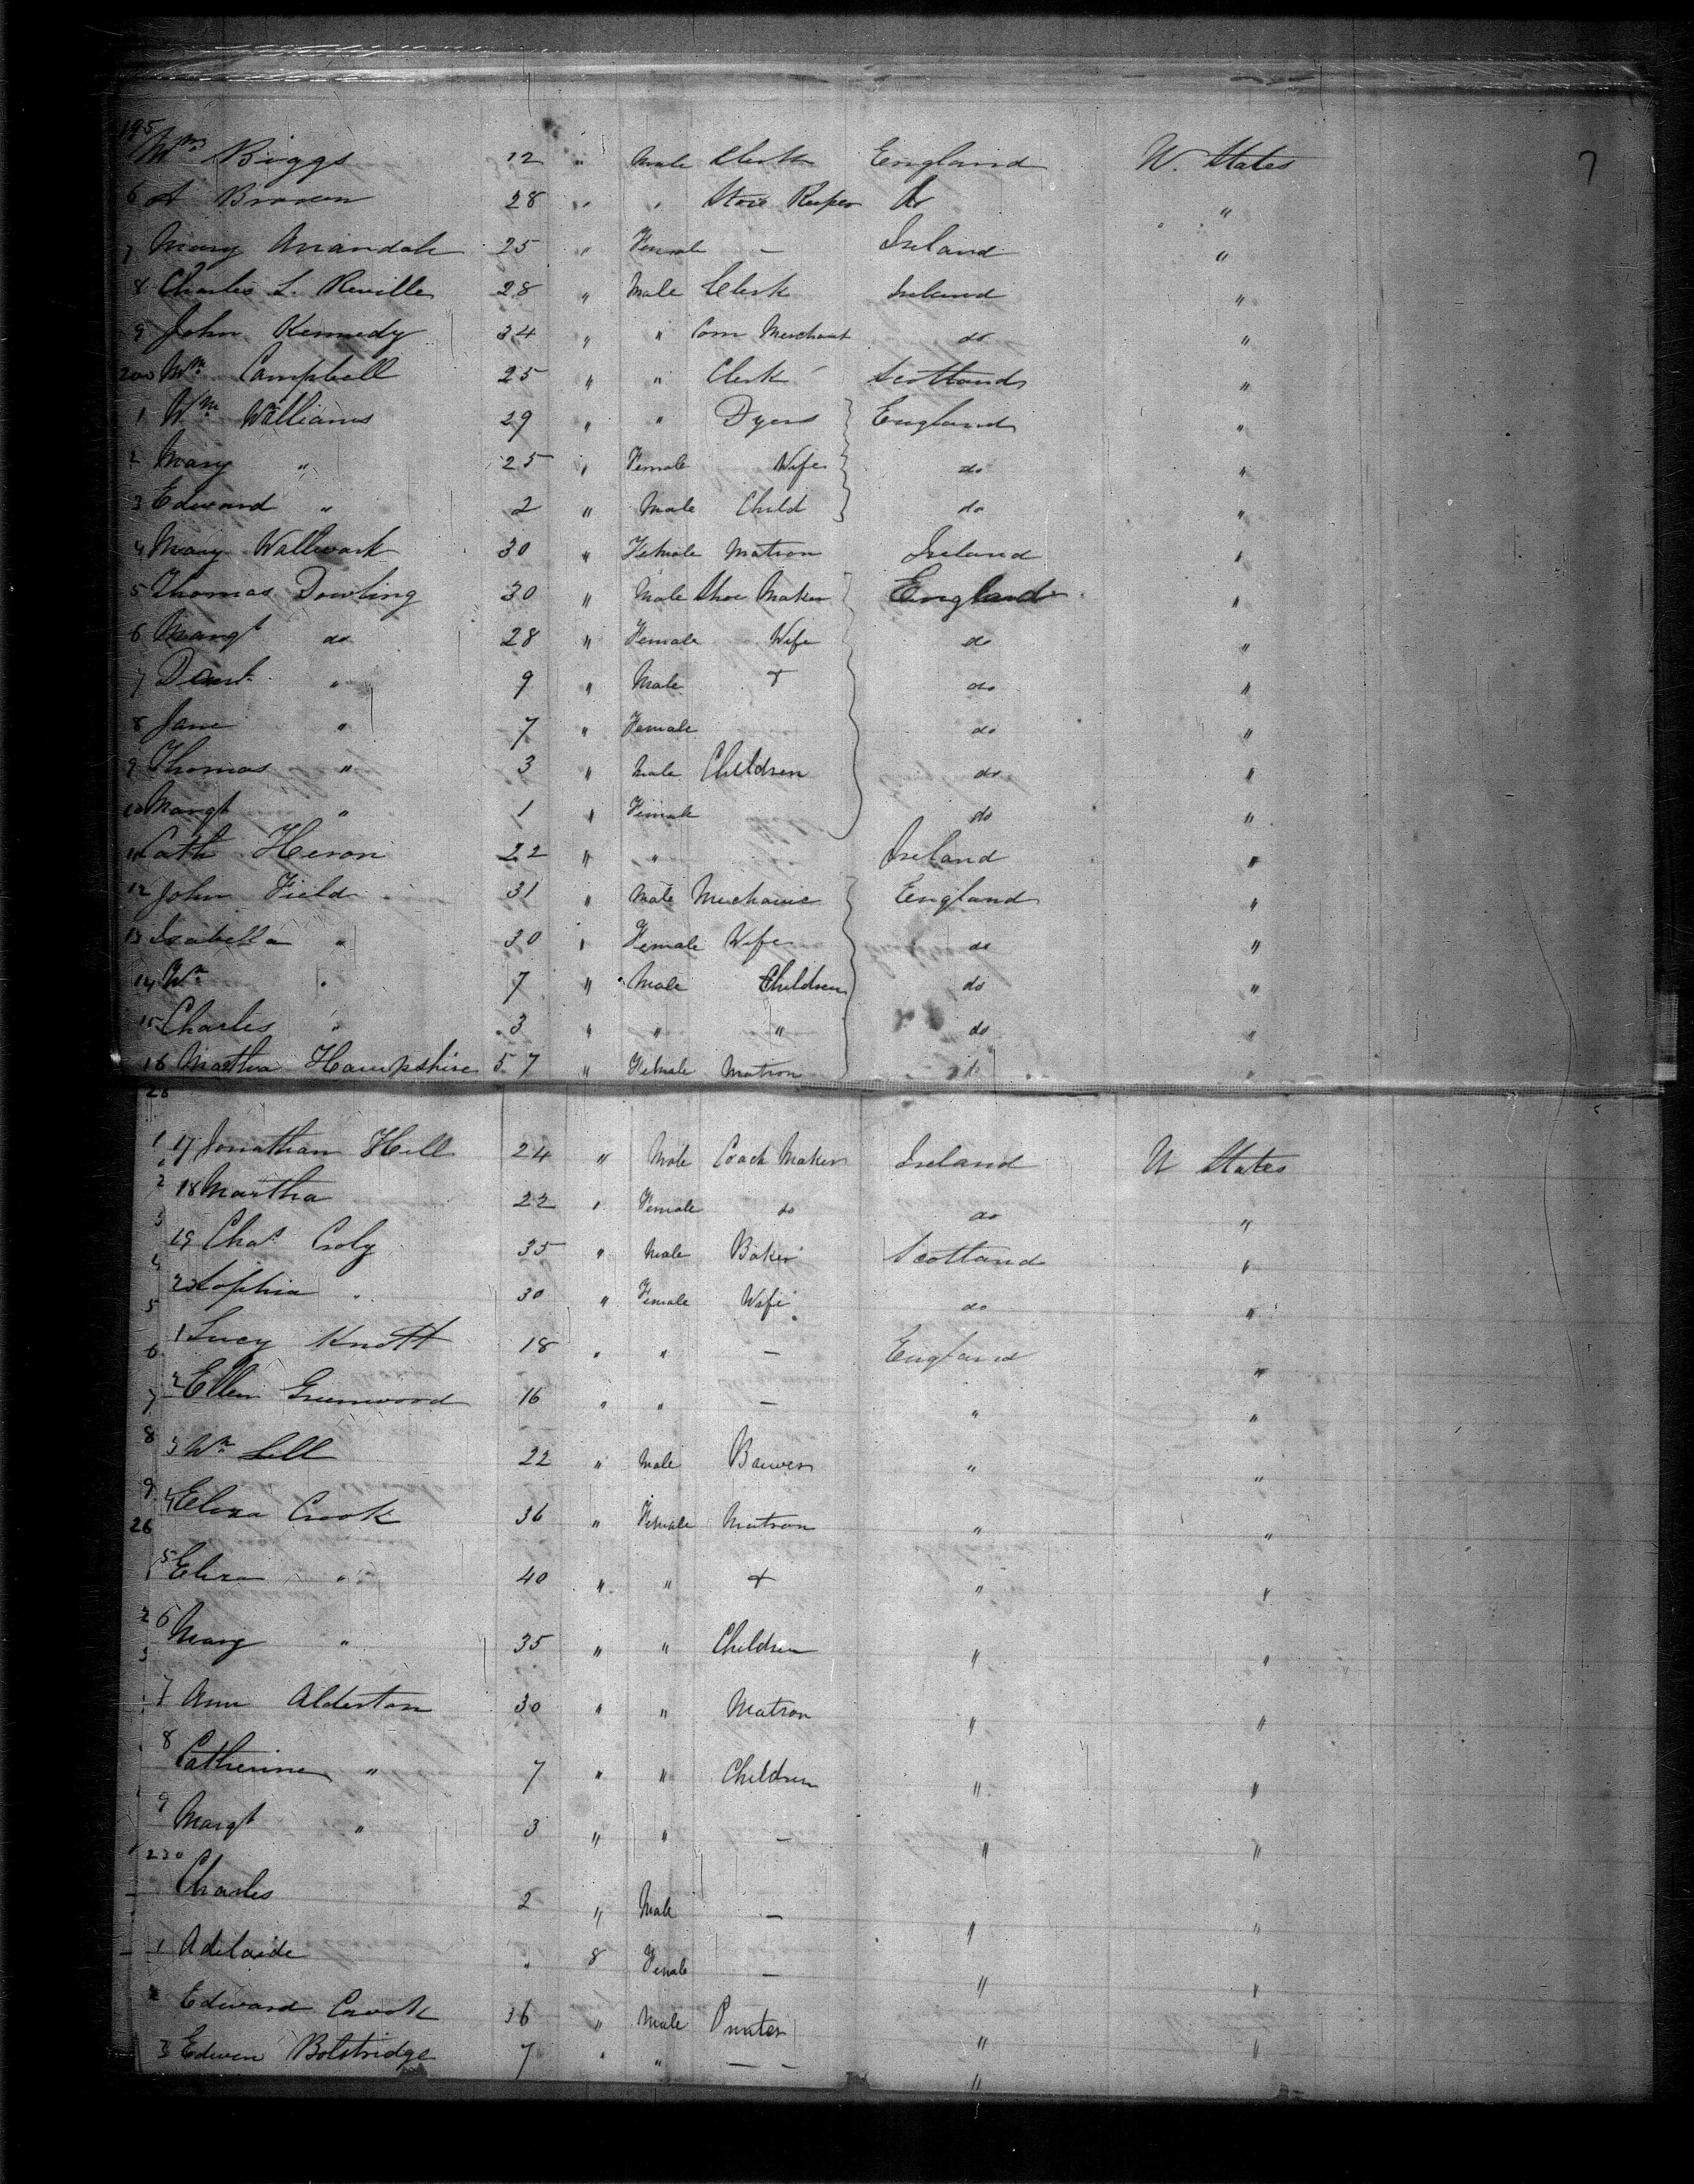 195 Wm Biggs 12 " Male Clerk England U. States 7
6 A Brown 28 " " Store Keeper do "
7 Mary Anandale 25 " Female — Ireland "
8 Charles L. Reville 28 " Male Clerk Ireland "
9 John Kennedy 34 " " Corn Merchant do "
200 Wm Campbell 25 " " Clerk Scotland "
1 Wm Williams 29 " " Dyer England "
2 Mary " 25 " Female Wife do "
3 Edward " 2 " Male Child do "
4 Mary Wallwork 30 " Female Matron Ireland "
5 Thomas Dowling 30 " Male Shoe Maker England "
6 Margt do 28 " Female Wife do "
7 " 9 " Male do "
8 Jane " 7 " Female do "
9 Thomas " 3 " Male Children do "
10 Margt " 1 " Female do "
11 Cath Heron 22 " " Ireland "
12 John Field 31 " Male Mechanic England "
13 Isabella " 30 " Female Wife do "
14 Wm " 7 " Male Children do "
15 Charles " 3 " " " do "
16 Martha Hampshire 57 " Female Matron do "
26
1 17 Jonathan Hill 24 " Male Coach Maker Ireland U States
2 18 Martha 22 " Female do do "
3 19 Chas Croly 35 " Male Baker Scotland "
4 20 Sophia " 30 " Female Wife do "
5 1 Lucy Knott 18 " " — England "
6 2 Ellen Greenwood 16 " " — " "
7
8 3 Wm Lell 22 " Male " "
9 4 Eliza Crook 36 " Female Matron " "
26
1 5 Eliza " 40 " " " "
2 6 Mary " 35 " " Children " "
3
7 Ann Alderton 30 " " Matron " "
8 Catherine " 7 " " Children " "
9 Margt " 3 " " — " "
230 Charles 2 " Male — " "
1 Adelaide " 8 Female — " "
2 Edward Crook 36 " Male Printer " "
3 Edwin Bolstridge 7 " " — — "